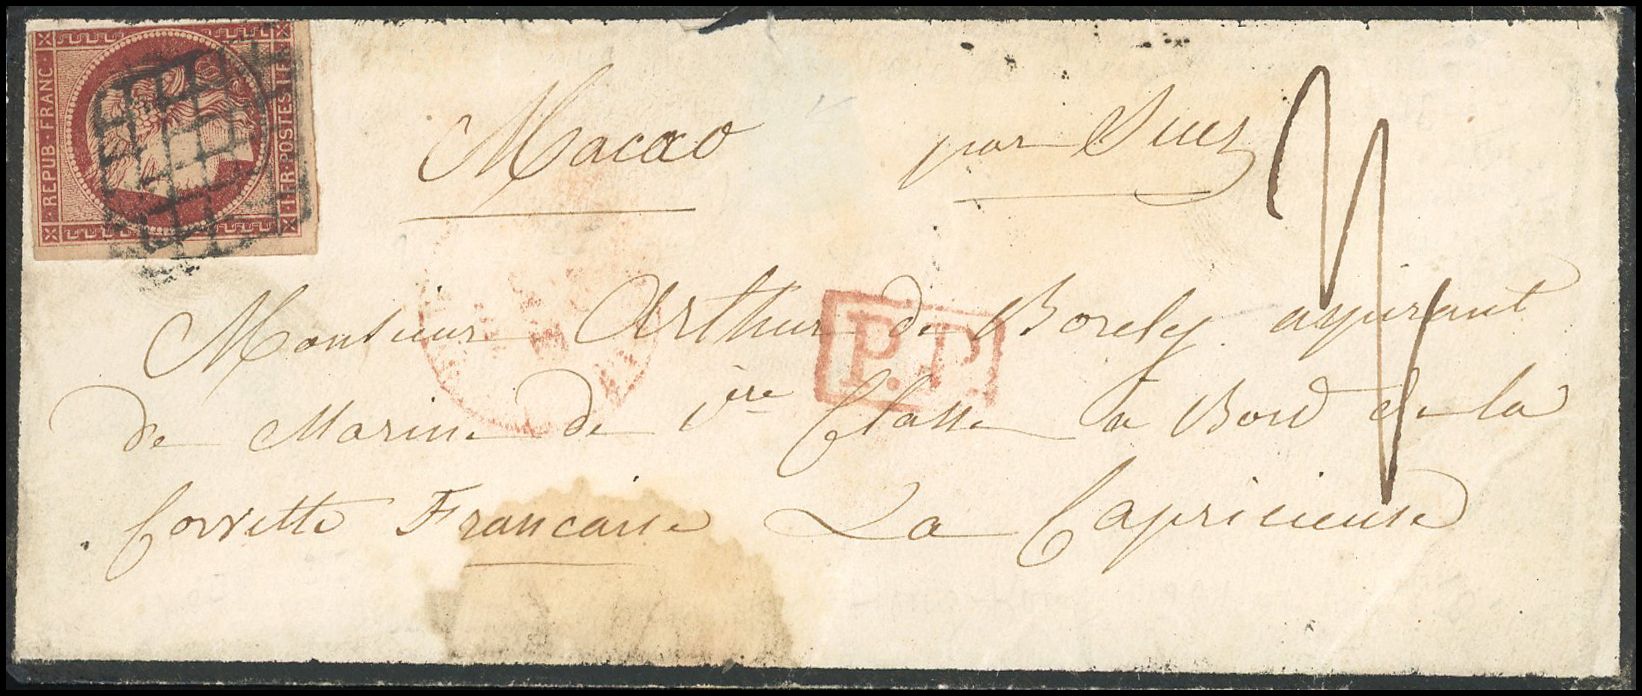 REPUB·FRANC·
1·FR·POSTES·1·FR
Macao par Suez
Monsieur Arthur de Borely aspirant
P.P.
de Marine de 1ère Classe à Bord de la
Corvette Francaise La Capricieuse